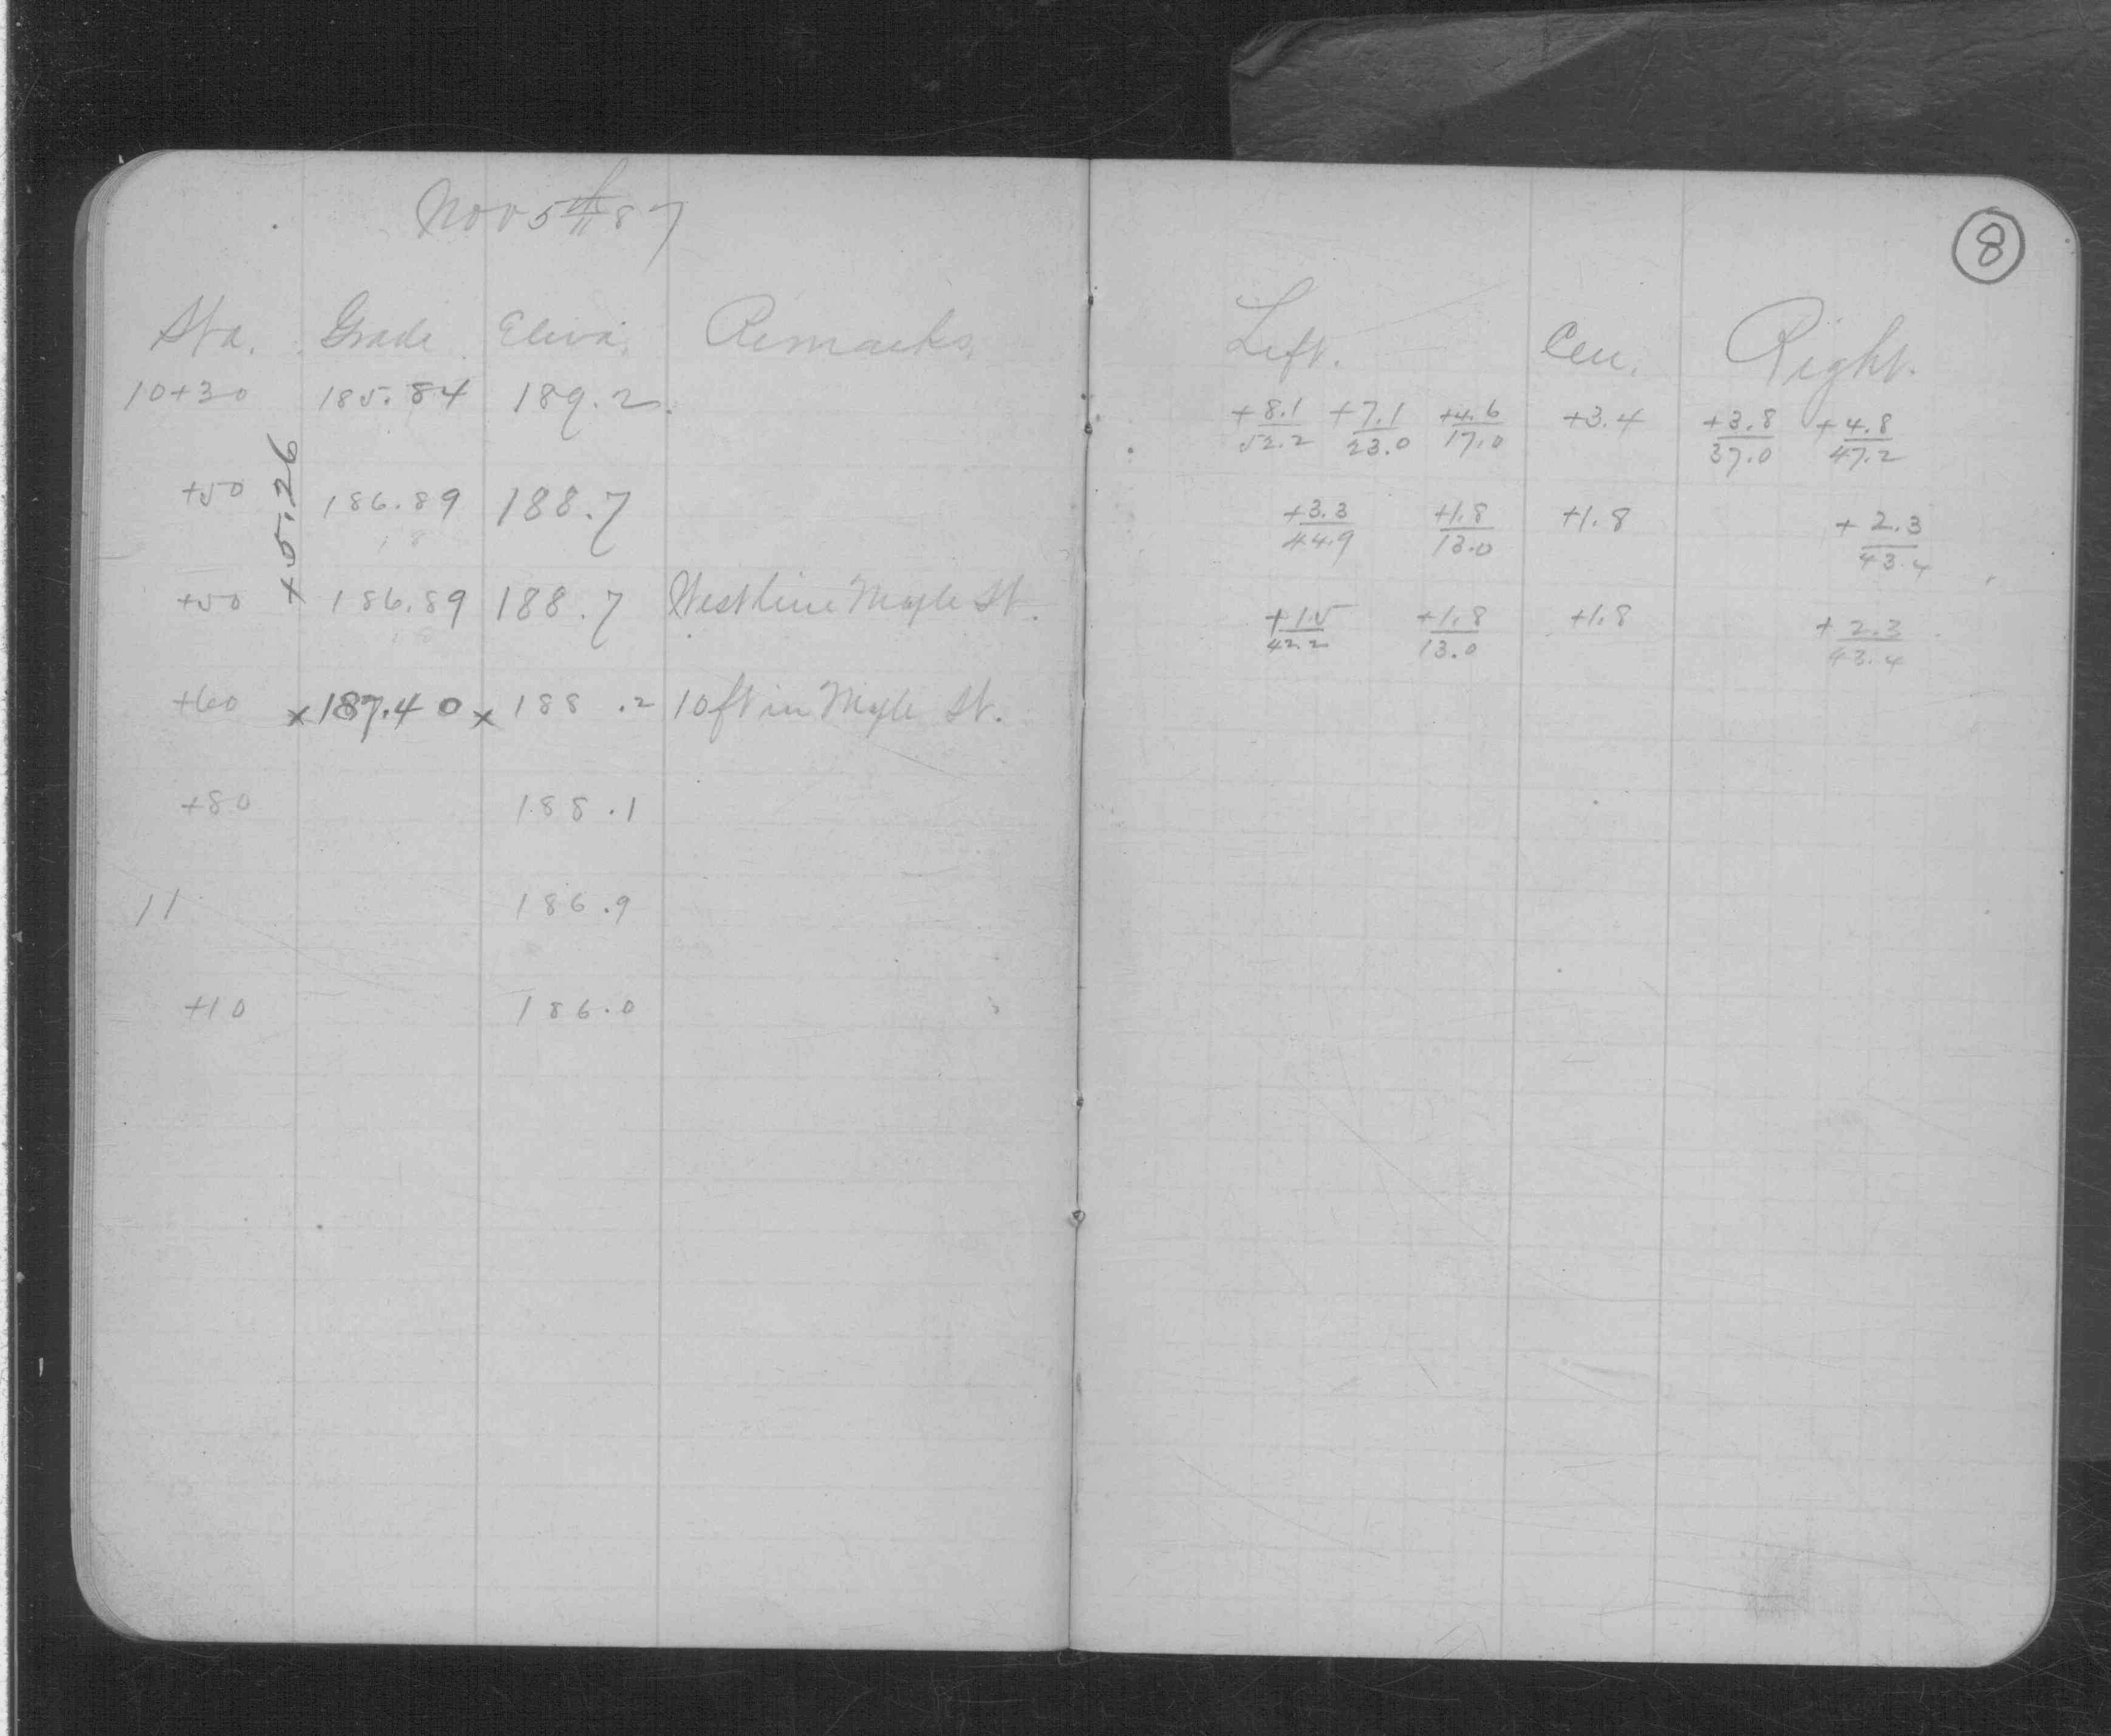 Nov 5th 87
Sta. Grade Eleva. Remarks.
10+30 185.84 189.2
+5.26
+50 186.89 188.7
+50 186.89 188.7 West line Myle St.
+60 x187.40 x 188.2 10 ft in Myle St.
+80 188.1
11 186.9
+10 186.0
8
Left. Cen. Right.
+8.1 +7.1 +4.6 +3.4 +3.8 +4.8
52.2 23.0 17.0 37.0 47.2
+3.3 +1.8 +1.8 +2.3
44.9 13.0 43.4
+1.5 +1.8 +1.8 +2.3
42.2 13.0 43.4